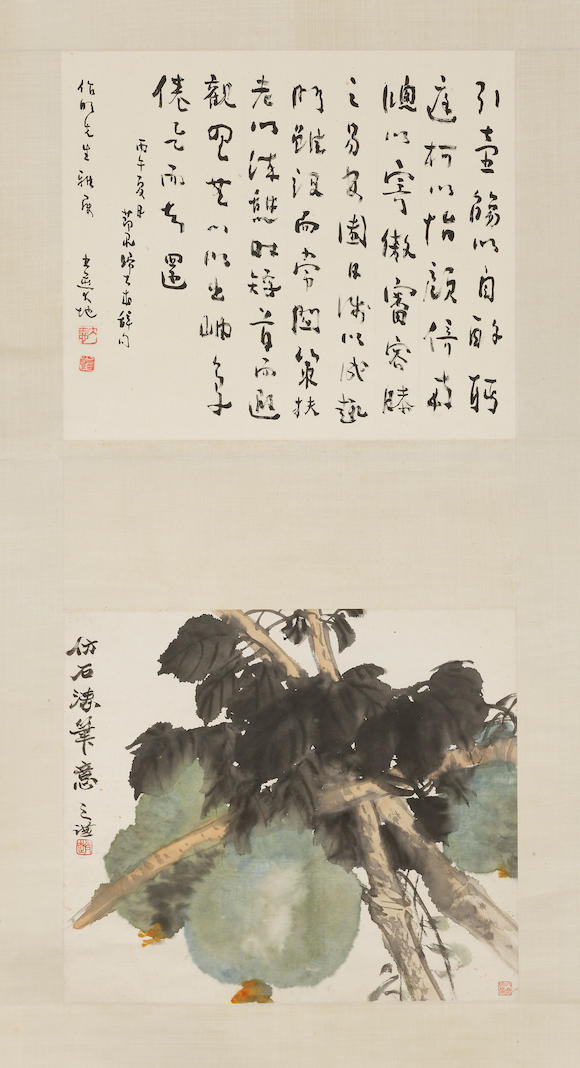 引壺觴以自酌眄
庭柯以怡顏倚南
窗以寄傲審容膝
之易安園日涉以成趣
門雖設而常關策扶
老以流憩時矯首而遐
觀雲無心以出岫鳥
倦飛而知還
丙午夏月
節录歸去來辭句
先生雅屬
仿石濤筆意